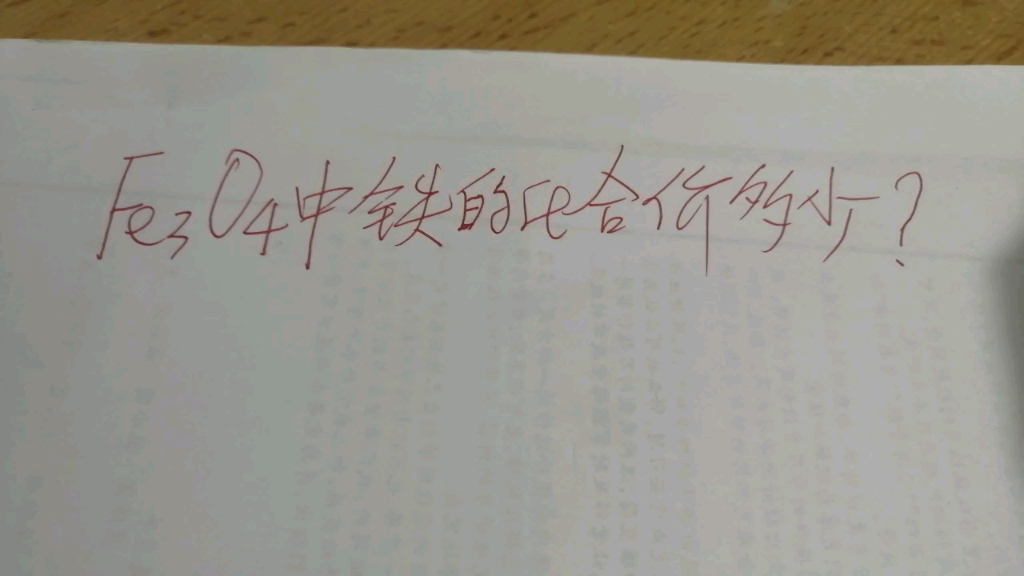 Fe₃O₄中铁的化合价多少?